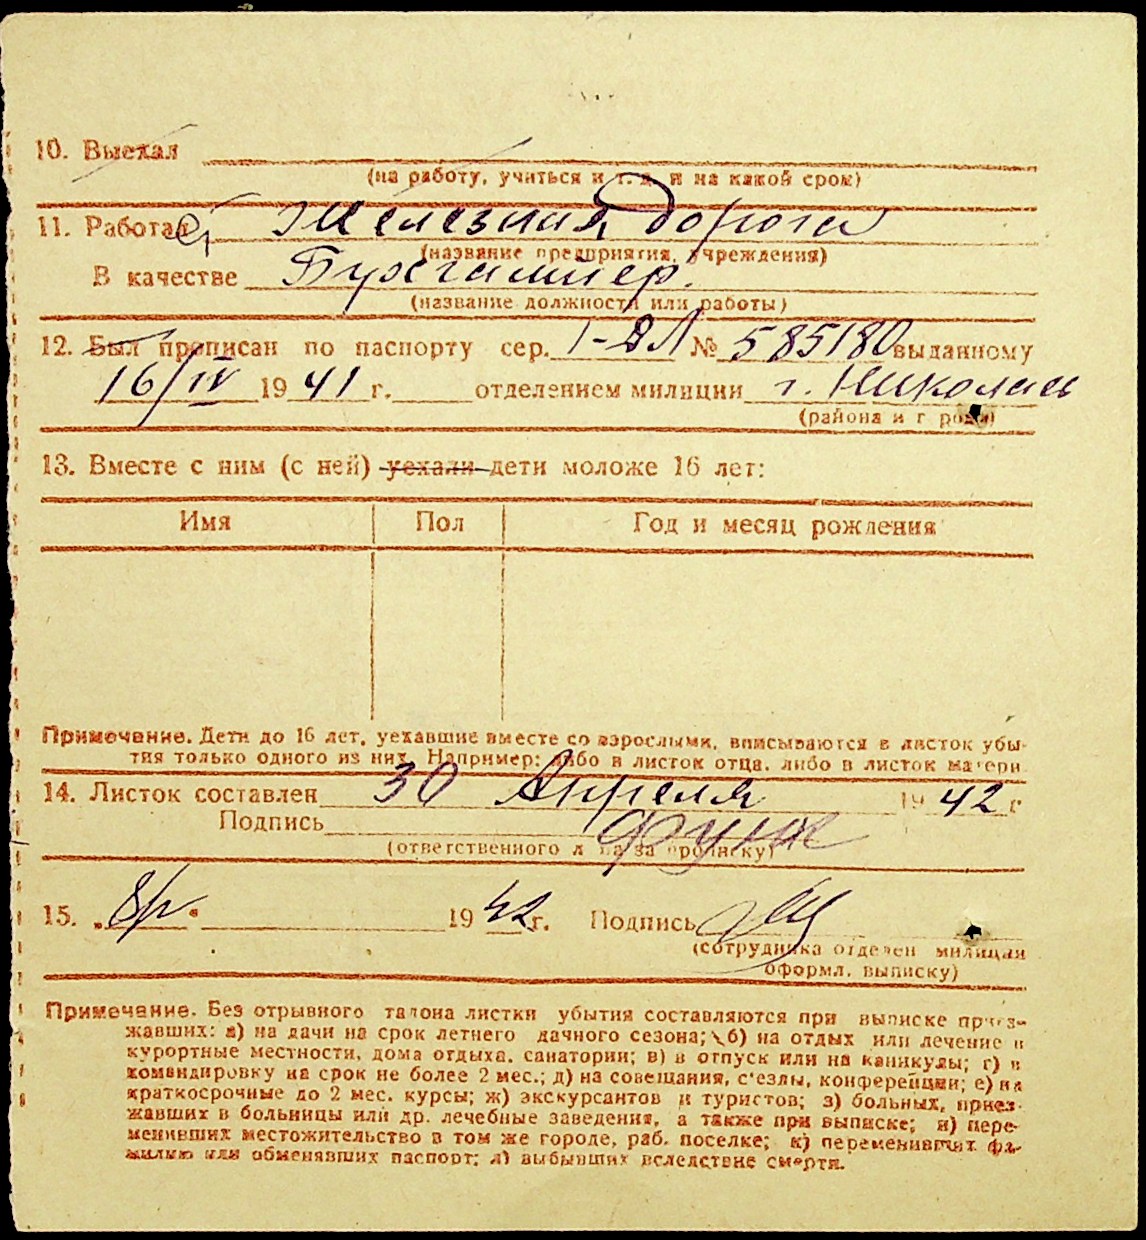 10. Выехал
(на работу, учиться и т. д. и на какой срок)
11. Работает Железная дорога
(название предприятия, учреждения)
В качестве Бухгалтер.
(название должности или работы)
12. Был прописан по паспорту сер. I-ДЛ № 585180 выданному
16/IV 1941 г. отделением милиции г. Николаев
(района и города)
13. Вместе с ним (с ней) уехали дети моложе 16 лет:
Имя Пол Год и месяц рождения
Примечание. Дети до 16 лет, уехавшие вместе со взрослыми, вписываются в листок убы-
тия только одного из них. Например: либо в листок отца, либо в листок матери
14. Листок составлен 30 Апреля 1942 г
Подпись
(ответственного л на за прописку)
15. „8/V“ 1942г. Подпись
(сотрудника отделен милиции
оформл. выписку)
Примечание. Без отрывного талона листки убытия составляются при выписке приез-
жавших: а) на дачи на срок летнего дачного сезона; б) на отдых или лечение в
курортные местности, дома отдыха, санатории; в) в отпуск или на каникулы; г) в
командировку на срок не более 2 мес.; д) на совещания, с'езды, конференции; е) на
краткосрочные до 2 мес. курсы; ж) экскурсантов и туристов; з) больных, приез-
жавших в больницы или др. лечебные заведения, а также при выписке; и) пере-
менивших местожительство в том же городе, раб. поселке; к) переменивших фа-
милию или обменявших паспорт; л) выбывших вследствие смерти.